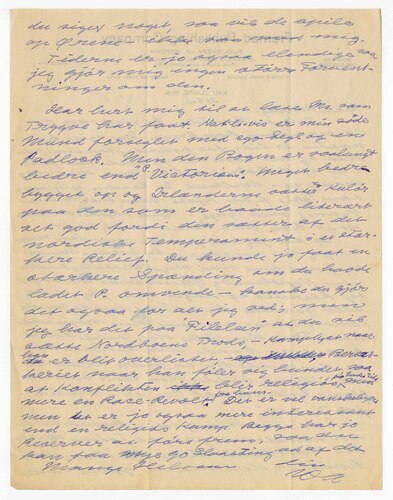 du siger noget, saa vil de spile
op Ørene
Tiderne er jo ogsaa elendige saa
jeg gjør mig ingen større Forvent-
ninger om den.
Har lurt mig til at læse Ms. som
Trygve har faat. er min søde
Mund forseglet med syv Segl og en
Padlock. Men den Bogen er saalangt
bedre end "P. Victorious". Meget bedre
bygget op og Irlænderne sætter Kulør
paa den som er baade literært
set god fordi den sætter af det
nordiske Temperament i et stær-
kere Relief. Du kunde jo faat en
stærkere Spænding om du havde
ladet P. omvende — kanske du gjør
det ogsaa for alt jeg ved; men
jeg har det paa Følelsen at du vil
sætte Nordboens Trods, — Kamplyst naar
han er blit overlistet,
naar han føler sig bunden, saa
at Konflikten blir religiøs,
mere en Race-Revolt. Det er vel vanskeligere
men det er jo ogsaa mere interessant
end en religiøs Kamp. Begge har jo
Reserver at føre frem, saa du
kan faa mye Slaasting ud af det
Mange Hilsener
din